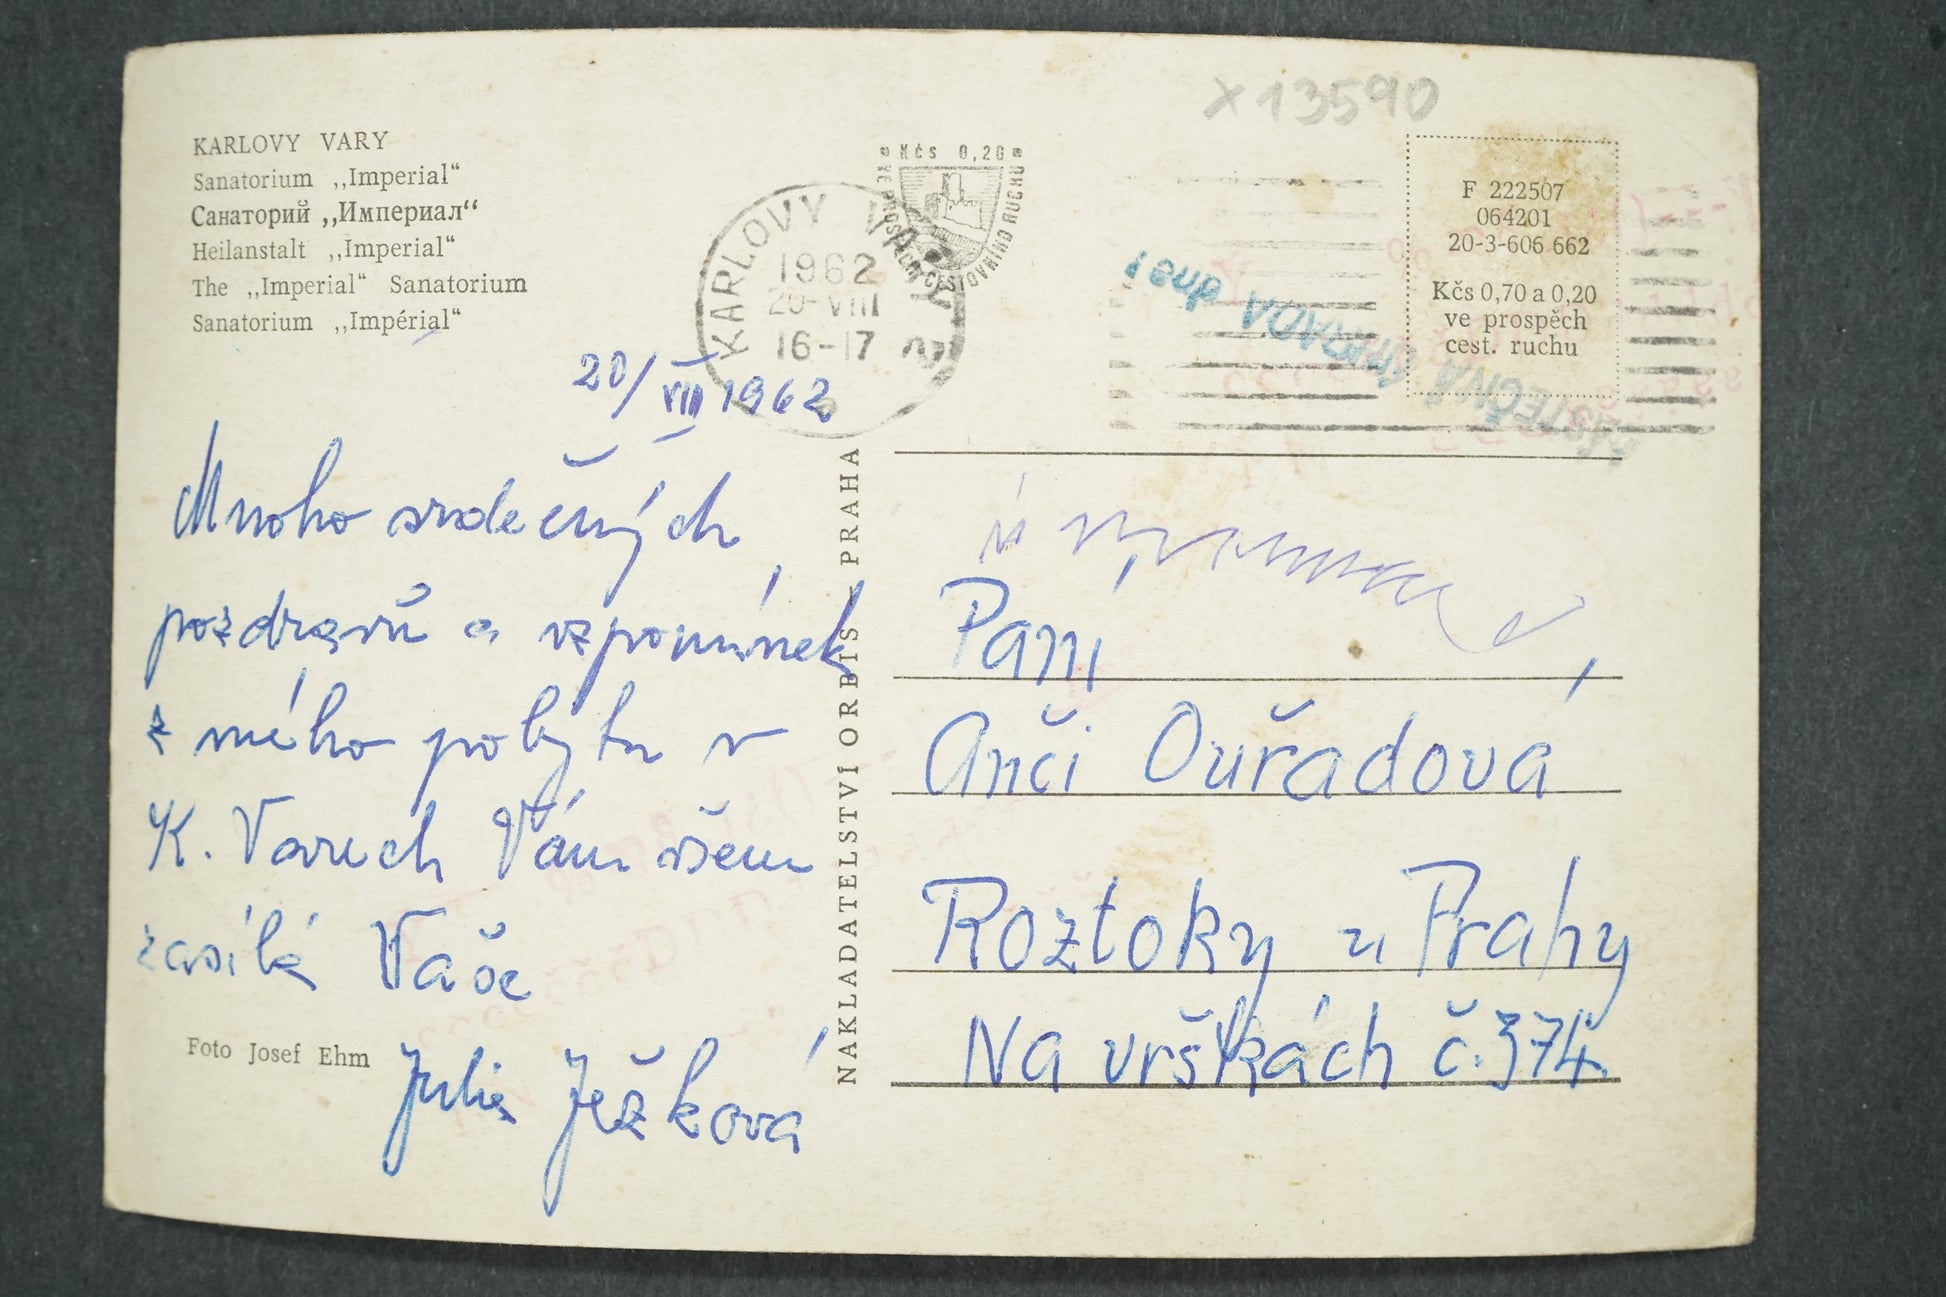 KARLOVY VARY
Sanatorium ,,Imperial“
Санаторий ,,Империал“
Heilanstalt ,,Imperial“
The ,,Imperial“ Sanatorium
Sanatorium ,,Impérial“
20/VIII 1962
Mnoho srdečných
pozdravů a vzpomínek
z mého pobytu v
K. Varech Vám všem
zasílá Vaše
Julie Ježková
Foto Josef Ehm
NAKLADATELSTVÍ ORBIS – PRAHA
Kčs 0,20
KARLOVY VARY
1962
20-VIII
16-17
x 13590
F 222507
064201
20-3-606 662
Kčs 0,70 a 0,20
ve prospěch
cest. ruchu
dne:
Paní
Anči Ouřadová
Roztoky u Prahy
Na vrškách č. 374